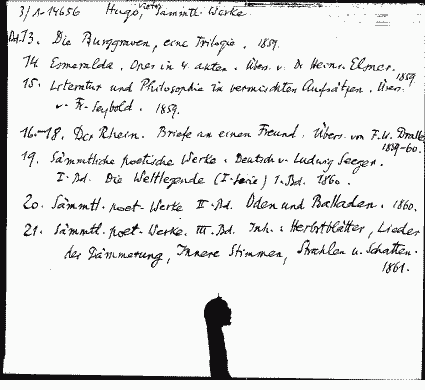 3/1-14656 Hugo, Victor, Sämmtl. Werke
Bd.13. Die Burggraven, eine Trilogie. 1859.
14. Esmeralda. Oper in 4 Akten. Übers. v. Dr Heinr. Elmer. 1859.
15. Literatur und Philosophie in vermischten Aufsätzen. Übers.
v. Fr. Seybold. 1859.
16.-18. Der Rhein. Briefe an einen Freund. Übers. von F.W. Dralle. 1859-60.
19. Sämmtliche poetische Werke. Deutsch v. Ludwig Seeger.
I. Bd. Die Weltlegende (I-Serie) 1. Bd. 1860.
20. Sämmtl. poet. Werke II. Bd. Oden und Balladen. 1860.
21. Sämmtl. poet. Werke. III. Bd. Inh.: Herbstblätter, Lieder
der Dämmerung, Innere Stimmen, Strahlen u. Schatten.
1861.